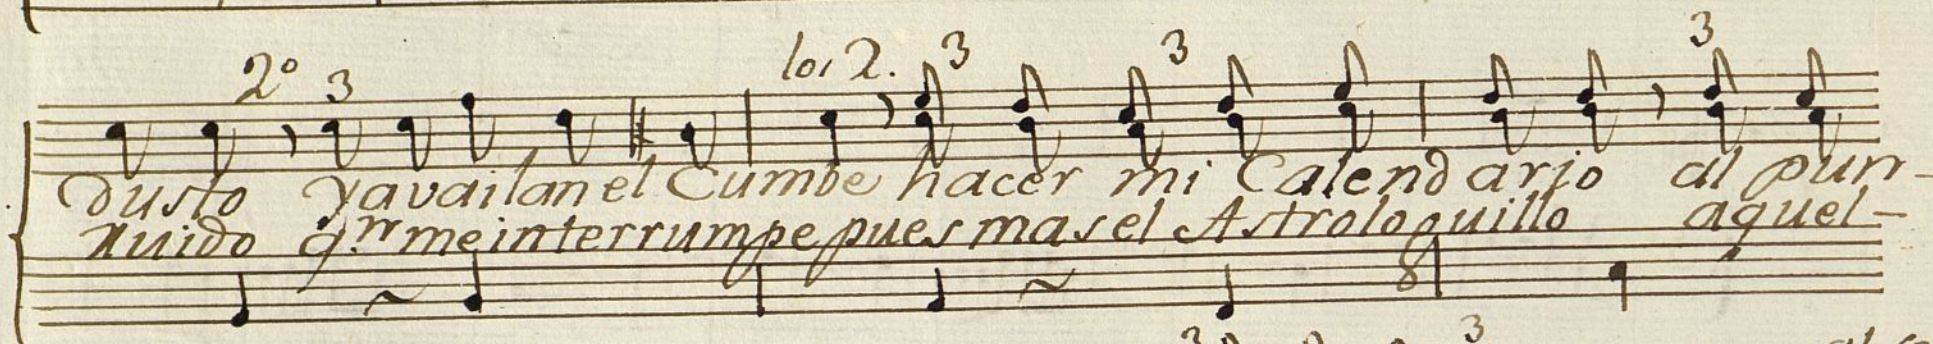 2º 3 los 2. 3 3 3
dusto yavailan el Cumbe hacer mi Calendario al pun-
Ruido q.n me interrumpe pues mas el Astrologuillo aquel-
8
3 3